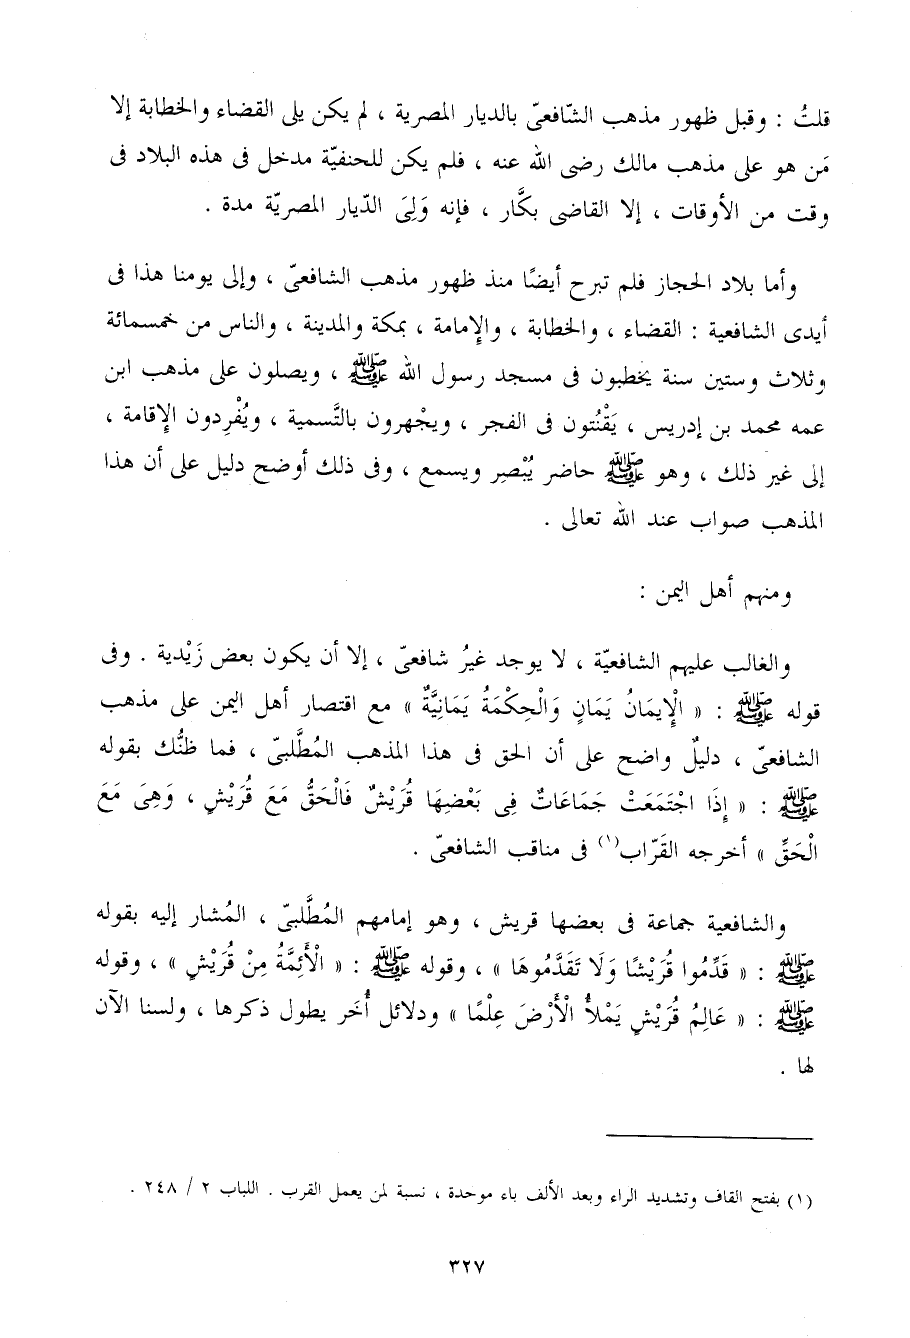 قلتُ : وقبل ظهور مذهب الشّافعىّ بالديار المصرية ، لم يكن يلى القضاء والخطابة إلا
مَن هو على مذهب مالك رضى الله عنه ، فلم يكن للحنفيّة مدخل فى هذه البلاد فى
وقت من الأوقات ، إلا القاضى بكَّار ، فإنه وَلِىَ الدّيار المصريّة مدة .
وأما بلاد الحجاز فلم تبرح أيضًا منذ ظهور مذهب الشافعىّ ، وإلى يومنا هذا فى
أيدى الشافعية : القضاء ، والخطابة ، والإمامة ، بمكة والمدينة ، والناس من خمسمائة
وثلاث وستين سنة يخطبون فى مسجد رسول الله ﷺ ، ويصلون على مذهب ابن
عمه محمد بن إدريس ، يَقْنُتون فى الفجر ، ويجْهرون بالتَّسمية ، ويُفْرِدون الإقامة ،
إلى غير ذلك ، وهو ﷺ حاضر يُبْصِر ويسمع ، وفى ذلك أوضح دليل على أن هذا
المذهب صواب عند الله تعالى .
ومنهم أهل اليمن :
والغالب عليهم الشافعيّة ، لا يوجد غيرُ شافعىّ ، إلا أن يكون بعض زَيْدية . وفى
قوله ﷺ : « الْإِيمَانُ يَمَانٍ وَالْحِكْمَةُ يَمَانِيَّةٌ » مع اقتصار أهل اليمن على مذهب
الشافعىّ ، دليلٌ واضح على أن الحق فى هذا المذهب المُطَّلبىّ ، فما ظنُّك بقوله
ﷺ : « إِذَا اجْتَمَعَتْ جَمَاعَاتٌ فِى بَعْضِهَا قُرَيْشٌ فَالْحَقُّ مَعَ قُرَيْشٍ ، وَهِىَ مَعَ
الْحَقِّ » أخرجه القَرّاب(١) فى مناقب الشافعىّ .
والشافعية جماعة فى بعضها قريش ، وهو إمامهم المُطَّلبىّ ، المُشار إليه بقوله
ﷺ : « قَدِّمُوا قُرَيْشًا وَلَا تَقَدَّمُوهَا » ، وقوله ﷺ : « الْأَئِمَّةُ مِنْ قُرَيْشٍ » ، وقوله
ﷺ : « عَالِمُ قُرَيْشٍ يَمْلأُ الْأَرْضَ عِلْمًا » ودلائل أُخَر يطول ذكرها ، ولسنا الآن
لها .
(١) بفتح القاف وتشديد الراء وبعد الألف باء موحدة ، نسبة لمن يعمل القرب . اللباب ٢ / ٢٤٨ .
٣٢٧